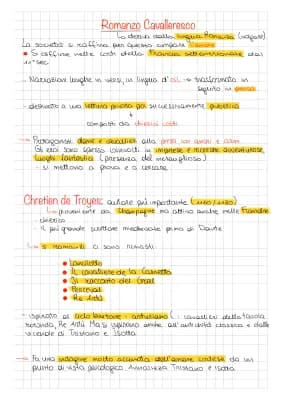 Romanzo Cavalleresco
↳ deriva dalla lingua Romanza (volgare)
La società si raffina per questo compare l'amore
Si diffuse nelle corti della Francia settentrionale dal
- Narrazioni lunghe in versi, in lingua d'oil → trasformato in
seguito in prosa
- destinato a una lettura privata poi successivamente pubblica
composti da diversi
→ Protagonisti: dame e cavalieri alle prese con amori e armi
Gli eroi sono spesso coinvolti in imprese e ricerche avventurose,
luoghi fantastici (presenza del meraviglioso)
- si mettono a prova e a cercare
Chretien de Troyes: autore più importante
↳ proveniente da Champagne ma attivo anche nelle Fiandre
- chierico
- il più grande scrittore medioevale prima di Dante
5 romanzi ci sono rimasti:
Lancillotto
Il cavaliere de la Carretta
Il racconto del Graal
Perceval
Re Artù
- ispirato al ciclo bretone - arturiano: i cavalieri della tavola
rotonda, Re Artù. Ma si ispirano anche all'antichità classica e dalle
vicende di Tristano e Isotta
→ Fa una indagine molto accurata dell'amore cortese da un
punto di vista psicologico. Tristano e Isotta